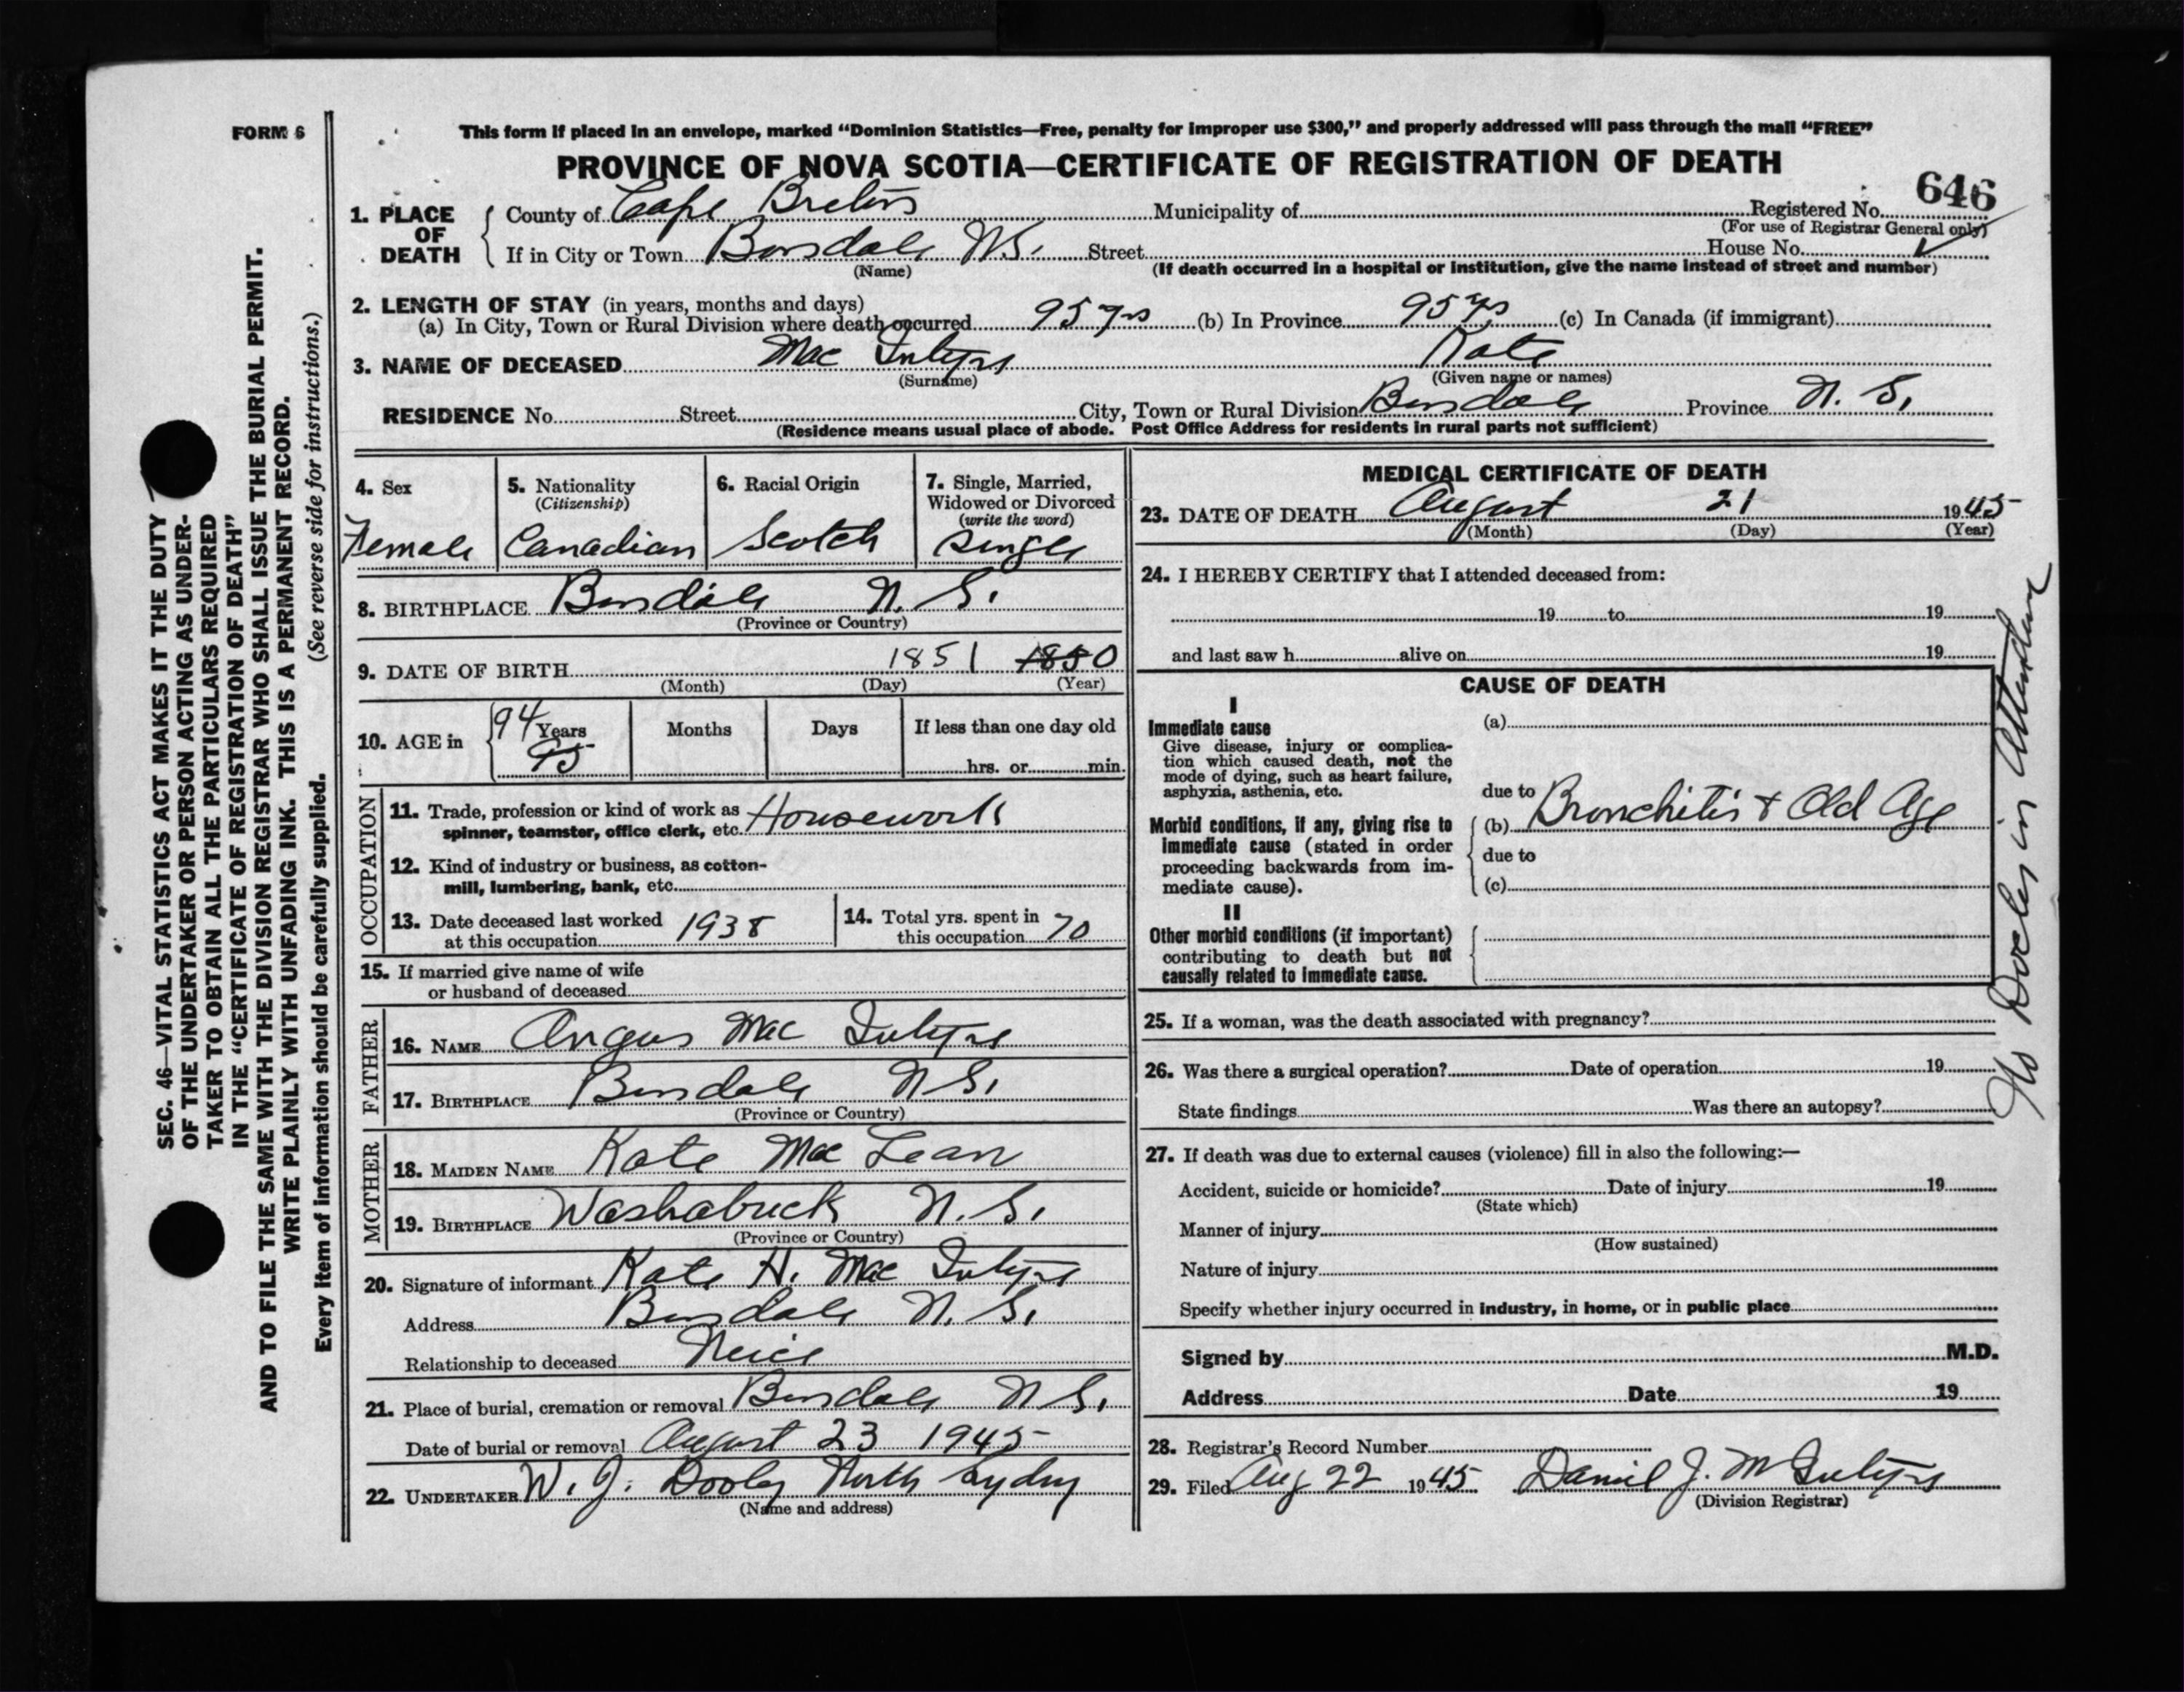 FORM 6
This form if placed in an envelope, marked “Dominion Statistics—Free, penalty for improper use $300,” and properly addressed will pass through the mail “FREE”
PROVINCE OF NOVA SCOTIA—CERTIFICATE OF REGISTRATION OF DEATH
646
1. PLACE OF DEATH { County of Cape Breton Municipality of Registered No.
(For use of Registrar General only)
If in City or Town Boisdale N.S. Street House No.
(Name) (If death occurred in a hospital or institution, give the name instead of street and number)
2. LENGTH OF STAY (in years, months and days)
(a) In City, Town or Rural Division where death occurred 95 yrs (b) In Province 95 yrs (c) In Canada (if immigrant)
3. NAME OF DECEASED Mac Intyre Kate
(Surname) (Given name or names)
RESIDENCE No. Street City, Town or Rural Division Boisdale Province N. S.
(Residence means usual place of abode. Post Office Address for residents in rural parts not sufficient)
4. Sex
Female
5. Nationality
(Citizenship)
Canadian
6. Racial Origin
Scotch
7. Single, Married,
Widowed or Divorced
(write the word)
Single
8. BIRTHPLACE Boisdale N. S.
(Province or Country)
9. DATE OF BIRTH 1851 1850
(Month) (Day) (Year)
10. AGE in 94 Years Months Days If less than one day old
95 hrs. or min.
OCCUPATION
11. Trade, profession or kind of work as
spinner, teamster, office clerk, etc. Housework
12. Kind of industry or business, as cotton-
mill, lumbering, bank, etc.
13. Date deceased last worked
at this occupation 1938
14. Total yrs. spent in
this occupation 70
15. If married give name of wife
or husband of deceased
FATHER
16. NAME Angus Mac Intyre
17. BIRTHPLACE Boisdale N S.
(Province or Country)
MOTHER
18. MAIDEN NAME Kate Mac Lean
19. BIRTHPLACE Washabuck N. S.
(Province or Country)
20. Signature of informant Kate H. Mac Intyre
Address Boisdale N. S.
Relationship to deceased Neice
21. Place of burial, cremation or removal Boisdale N S.
Date of burial or removal August 23 1945
22. UNDERTAKER W. J. Dooley North Sydney
(Name and address)
MEDICAL CERTIFICATE OF DEATH
23. DATE OF DEATH August 21 1945
(Month) (Day) (Year)
24. I HEREBY CERTIFY that I attended deceased from:
19 to 19
and last saw h alive on 19
CAUSE OF DEATH
I
Immediate cause
Give disease, injury or complica-
tion which caused death, not the
mode of dying, such as heart failure,
asphyxia, asthenia, etc.
(a)
due to
Morbid conditions, if any, giving rise to
immediate cause (stated in order
proceeding backwards from im-
mediate cause).
(b) Bronchitis + Old Age
due to
(c)
II
Other morbid conditions (if important)
contributing to death but not
causally related to immediate cause.
25. If a woman, was the death associated with pregnancy?
26. Was there a surgical operation? Date of operation 19
State findings Was there an autopsy?
27. If death was due to external causes (violence) fill in also the following:—
Accident, suicide or homicide? Date of injury 19
(State which)
Manner of injury
(How sustained)
Nature of injury
Specify whether injury occurred in industry, in home, or in public place
Signed by M.D.
Address Date 19
28. Registrar's Record Number
29. Filed Aug 22 1945 Daniel J. McIntyre
(Division Registrar)
No Doctor in Attendance
SEC. 46—VITAL STATISTICS ACT MAKES IT THE DUTY
OF THE UNDERTAKER OR PERSON ACTING AS UNDER-
TAKER TO OBTAIN ALL THE PARTICULARS REQUIRED
IN THE “CERTIFICATE OF REGISTRATION OF DEATH”
AND TO FILE THE SAME WITH THE DIVISION REGISTRAR WHO SHALL ISSUE THE BURIAL PERMIT.
WRITE PLAINLY WITH UNFADING INK. THIS IS A PERMANENT RECORD.
Every item of information should be carefully supplied. (See reverse side for instructions.)